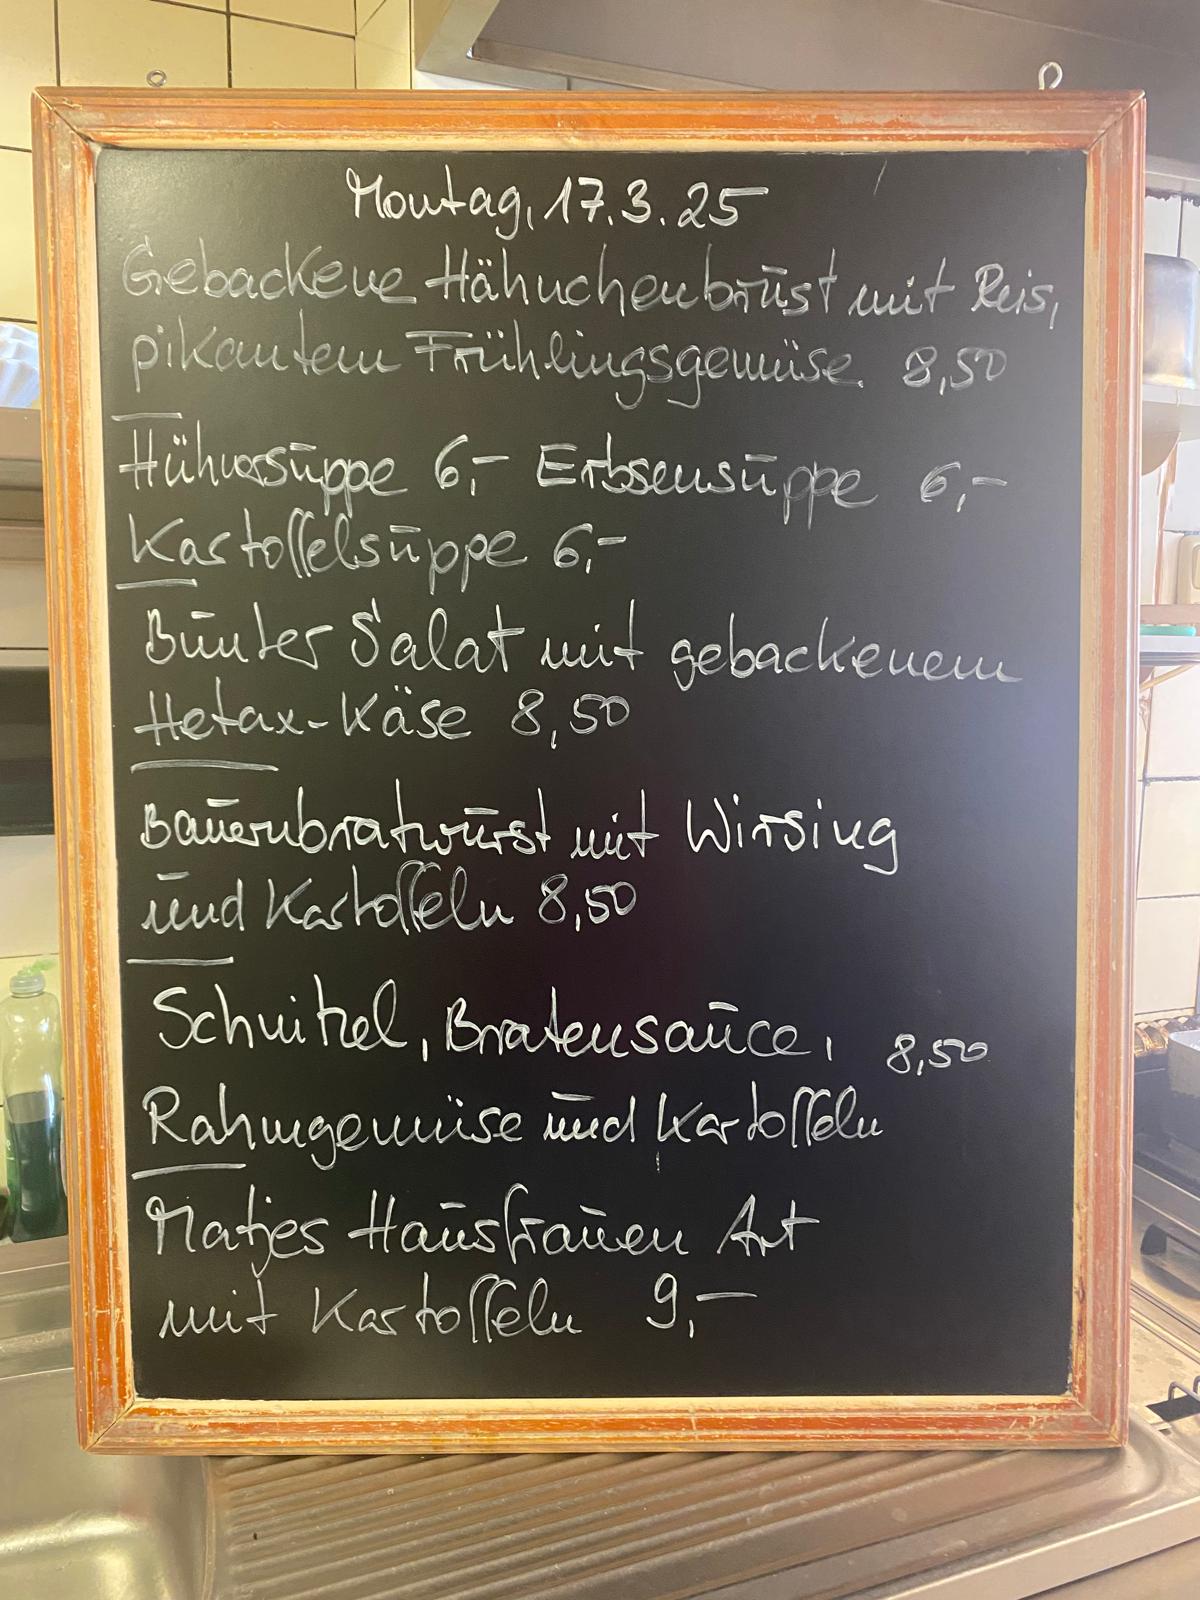 Montag, 17.3.25
Gebackene Hähnchenbrust mit Reis,
pikantem Frühlingsgemüse 8,50
Hühnersuppe 6,- Erbsensuppe 6,-
Kartoffelsuppe 6,-
Bunter Salat mit gebackenem
Hetax-Käse 8,50
Bauernbratwurst mit Wirsing
und Kartoffeln 8,50
Schnitzel, Bratensauce, 8,50
Rahmgemüse und Kartoffeln
Matjes Hausfrauen Art
mit Kartoffeln 9,-